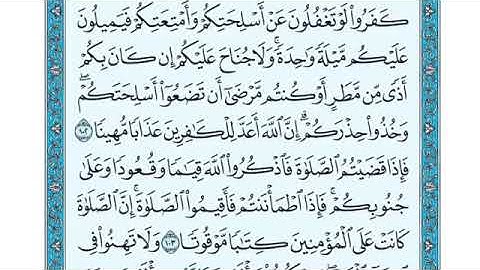 كَفَرُوا۟ لَوْ تَغْفُلُونَ عَنْ أَسْلِحَتِكُمْ وَأَمْتِعَتِكُمْ فَيَمِيلُونَ
عَلَيْكُم مَّيْلَةً وَٰحِدَةً ۚ وَلَا جُنَاحَ عَلَيْكُمْ إِن كَانَ بِكُمْ
أَذًى مِّن مَّطَرٍ أَوْ كُنتُم مَّرْضَىٰٓ أَن تَضَعُوٓا۟ أَسْلِحَتَكُمْ ۖ
وَخُذُوا۟ حِذْرَكُمْ ۗ إِنَّ ٱللَّهَ أَعَدَّ لِلْكَٰفِرِينَ عَذَابًا مُّهِينًا ١٠٢
فَإِذَا قَضَيْتُمُ ٱلصَّلَوٰةَ فَٱذْكُرُوا۟ ٱللَّهَ قِيَٰمًا وَقُعُودًا وَعَلَىٰ
جُنُوبِكُمْ ۚ فَإِذَا ٱطْمَأْنَنتُمْ فَأَقِيمُوا۟ ٱلصَّلَوٰةَ ۚ إِنَّ ٱلصَّلَوٰةَ
كَانَتْ عَلَى ٱلْمُؤْمِنِينَ كِتَٰبًا مَّوْقُوتًا ١٠٣ وَلَا تَهِنُوا۟ فِى